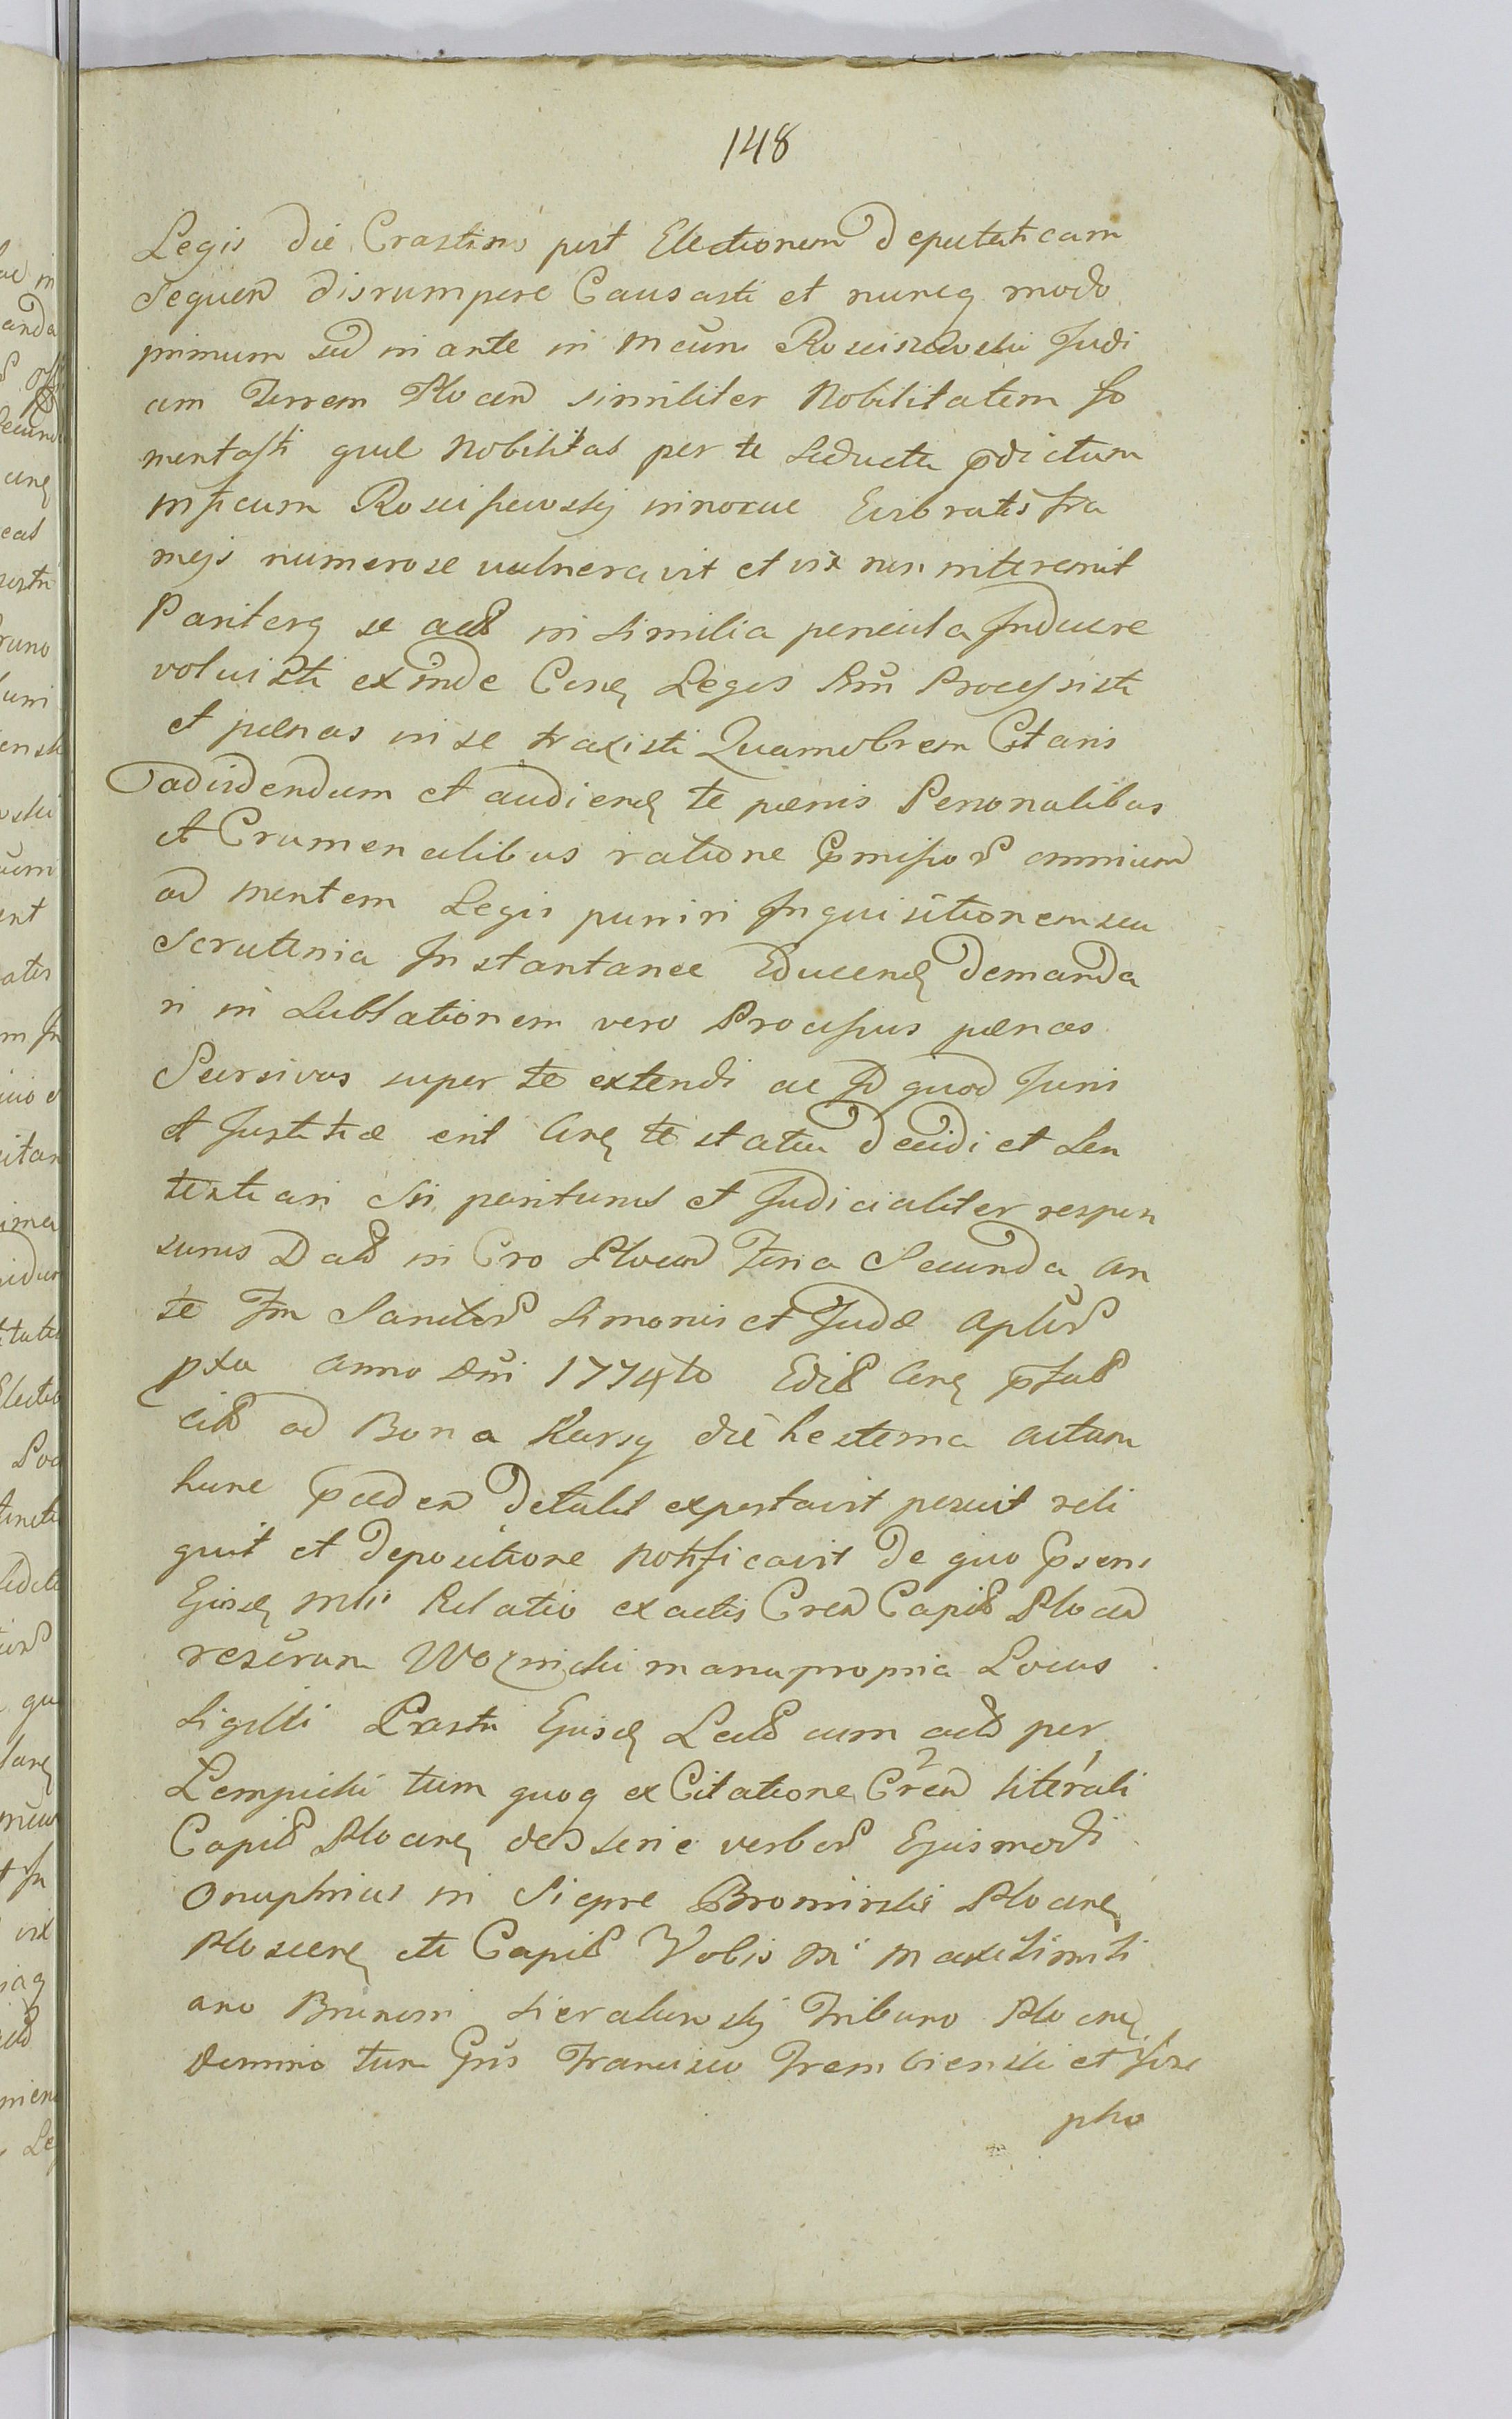 148
Legis die Crastino post Electionem Deputaticam
Sequen disrumpere Causasti et nuncq modo
primum sed in ante in Mcum Rosciszewski Judi
cem Terrem Plocen similiter Nobilitatem fo
mentasti quæ Nobilitas per te Seducta pdictum
Mficum Roscissewskij innocue Evibratis fra
mejs numerose vulneravit et vix non interemit
Pariterq se in similia pericula Inducere
voluisti exinde Legis Processisti
et pœnas in se traxisti Quamobrem Citaris
ad videndum et audiend te pœnis Personalibus
et Crumenalibus ratione pmissor omnium
ad mentem Legis puniri Inquisitionem seu
Scrutinia Instantanee Educend Demanda
ri in Sublationem vero Processus pœnas
Sursivas super te extendi ac Id quod Juri
et Justitiæ erit te statui Decidi et Sen
tentiari Sis pariturus et Judicialiter respon
surus Datt in Cro Plocen Feria Secunda An
te Fm Sanctor Simonis et Judæ Aplor
pxa Anno Dni 1774to
ad Bona Kursy die hesterna Actum
hunc pceden Detulit exportavit posuit reli
quit et Depositione Notificavit De quo psens
Ejusd Mli Relatio ex actis Cren Capit Plocen
reservan Woznicki manu propria Locus
Sigilli Castri Ejusd Lectt cum actt per
Lempicki tum quoq ex Citatione Cren literali
Capit Plocen de serie verbor Ejusmodi
Onuphrius in Siepre Bromirski Plocen
Ploscen ete Capit Vobis M Maximili
ano Brunoni Sieraławskij Tribuno Plocen
Domino tum Gnis Francisco Trembienski et Jose
pho